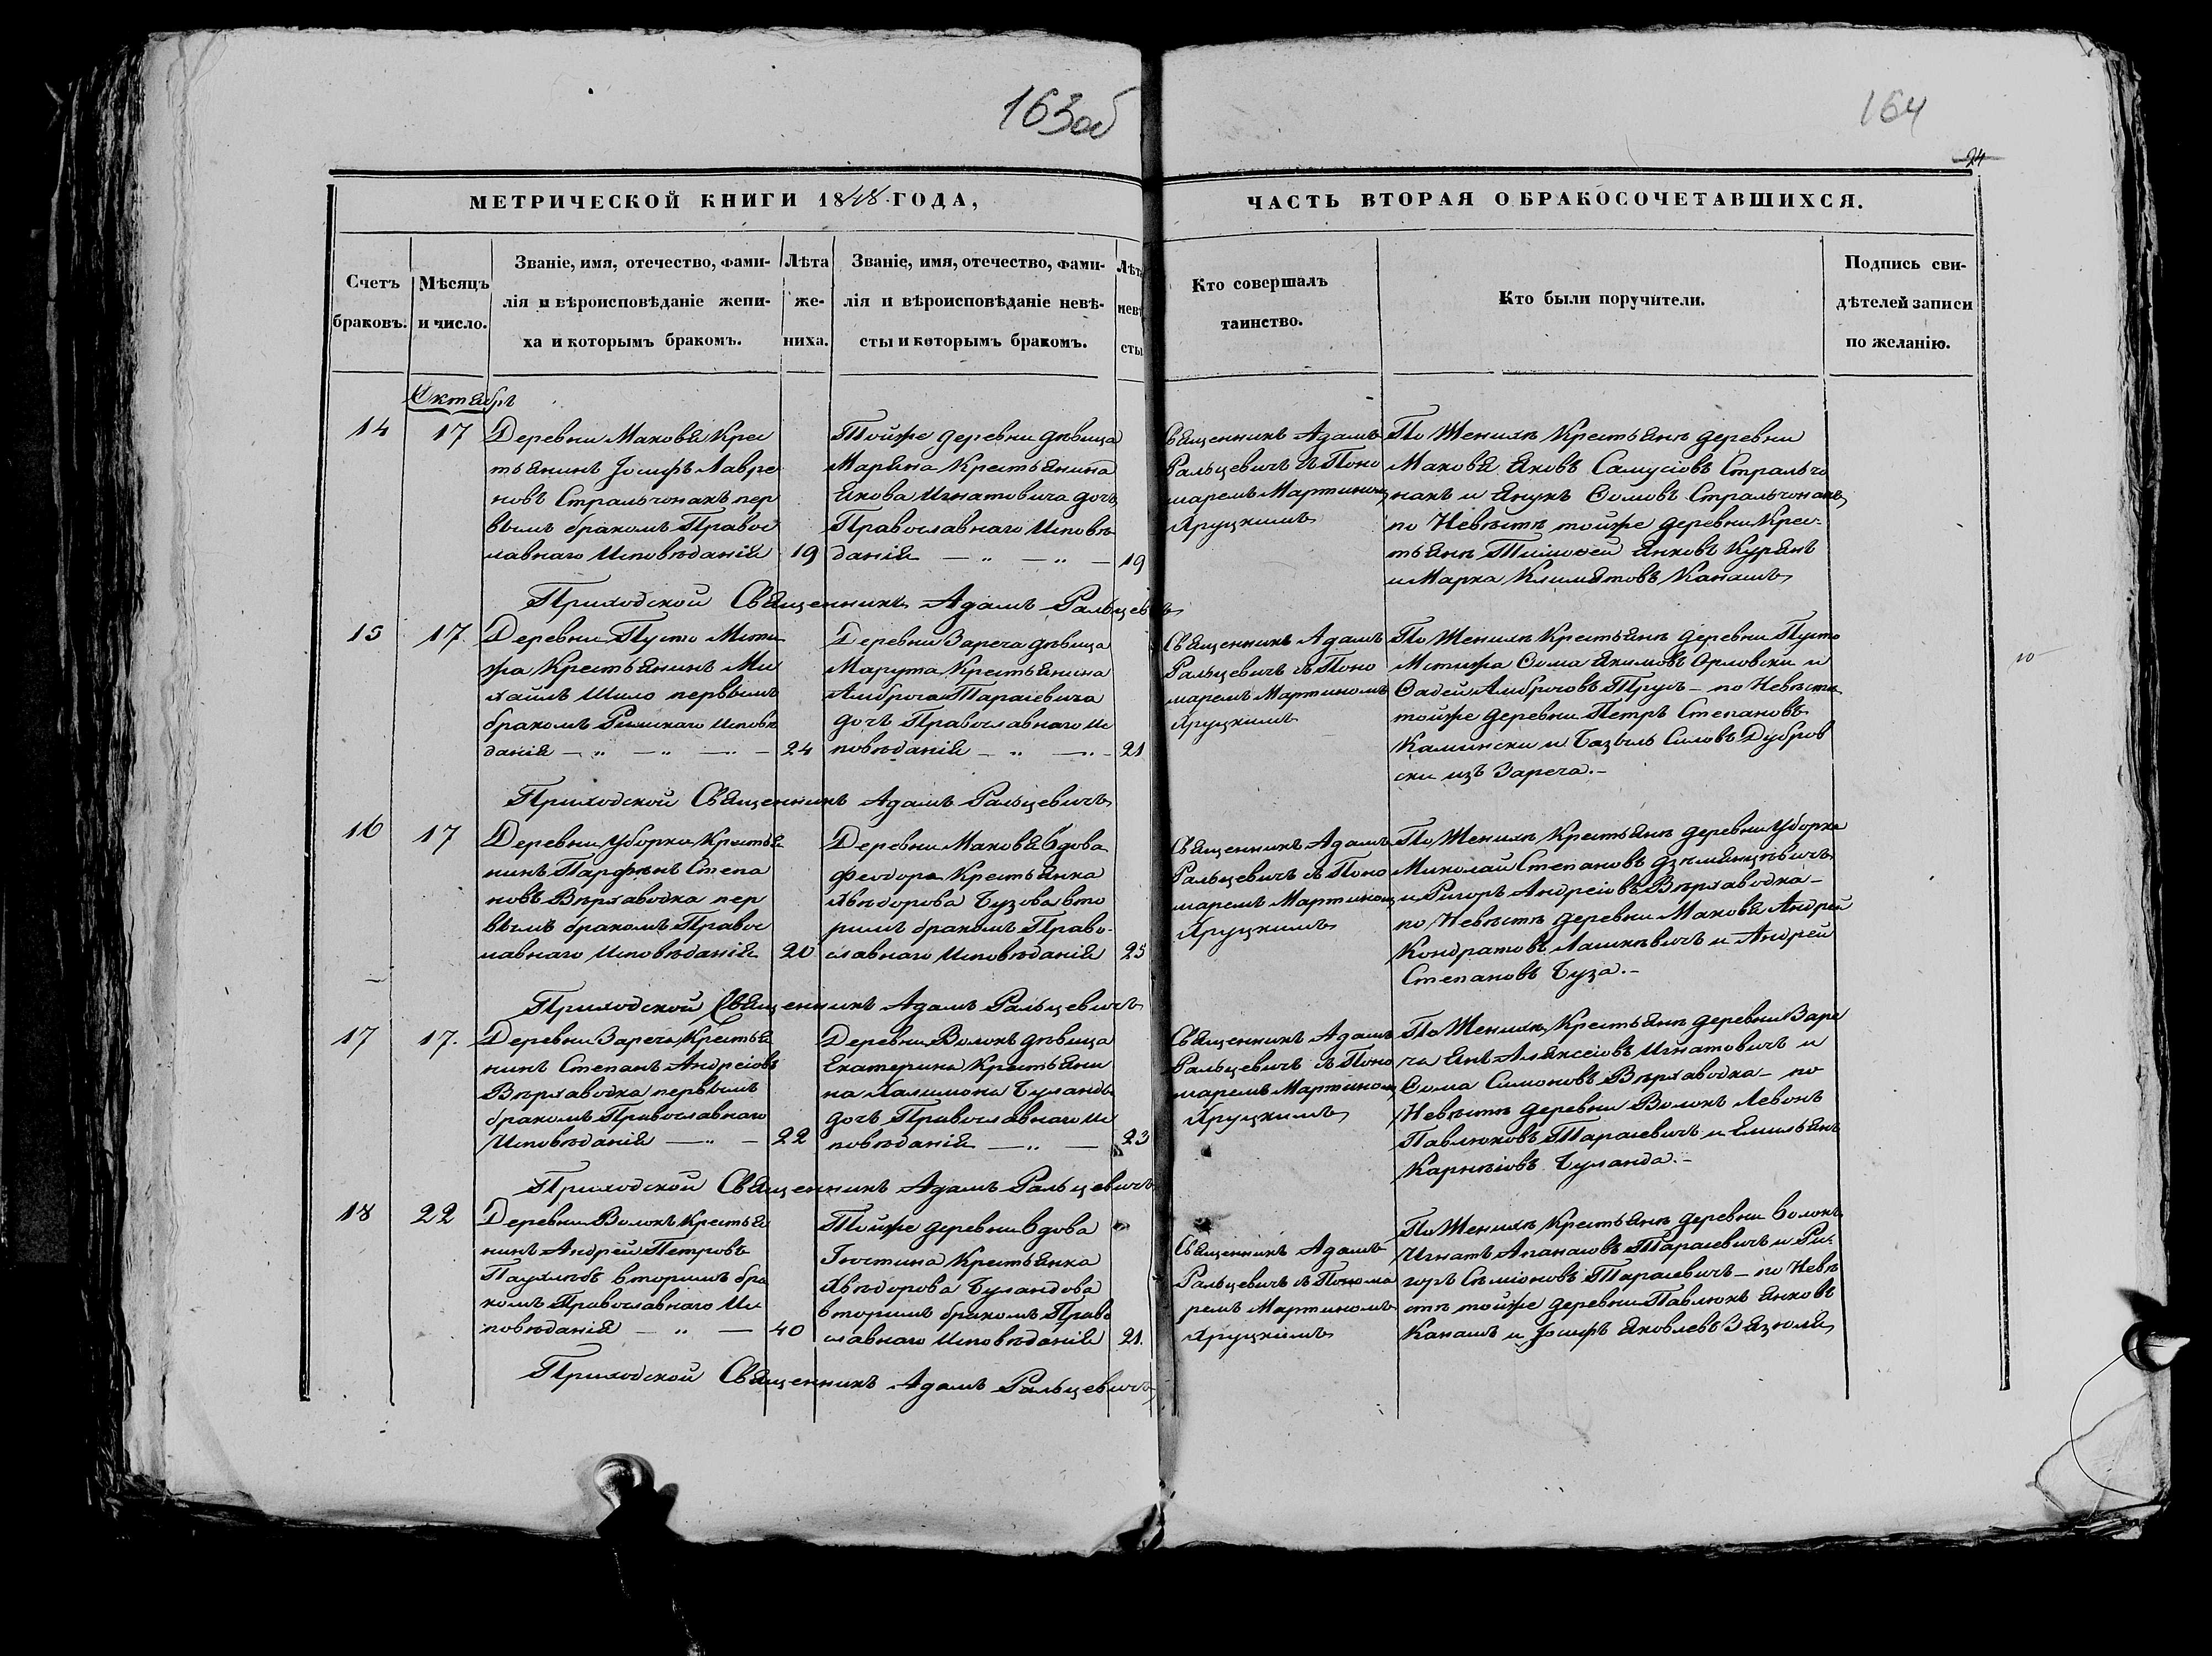 163об
164
24
МЕТРИЧЕСКОЙ КНИГИ 1848 ГОДА,
ЧАСТЬ ВТОРАЯ О БРАКОСОЧЕТАВШИХСЯ.
Счетъ
браковъ.
Мѣсяцъ
и число.
Званіе, имя, отечество, фами-
лія и вѣроисповѣданіе жени-
ха и которымъ бракомъ.
Лѣта
же-
ниха.
Званіе, имя, отечество, фами-
лія и вѣроисповѣданіе невѣ-
сты и которымъ бракомъ.
Лѣта
невѣ
сты
Кто совершалъ
таинство.
Кто были поручители.
Подпись сви-
дѣтелей записи
по желанію.
Октябрь
14
17
Деревни Маковя Крес
тьянинъ Іосифъ Лавре
новъ Стральчонакъ пер
вымъ бракомъ Правос
лавнаго Исповѣданія
19
Тойже деревни дѣвица
Марѣна Крестьянина
Якова Игнатовича дочь
Православнаго Исповѣ
данія
19
Священникъ Адамъ
Ральцевичъ съ Поно
маремъ Мартиномъ
Яруцкимъ
По Женихѣ Крестьянѣ деревни
Маковя Яковъ Самусіовъ Стральчо
накъ и Янукъ Ѳомовъ Стральчонакъ
по Невѣстѣ тойже деревни Крес-
тьянѣ Тимоѳей Янковъ Курянъ
и Марка Климятовъ Канашъ
Приходской Священникъ Адамъ Ральцевичъ
15
17
Деревни Пусто Мсти
жа Крестьянинъ Ми
хайлъ Шило первымъ
бракомъ Римскаго Исповѣ
данія
24
Деревни Зареча дѣвица
Марута Крестьянина
Амброга Тарасевича
дочъ Православнаго Ис
повѣданія
21
Священникъ Адамъ
Ральцевичъ съ Поно
маремъ Мартиномъ
Яруцкимъ
По Женихѣ Крестьянѣ деревни Пусто
Мстижа Ѳома Якимовъ Орловски и
Ѳадей Амброговъ Трусъ - по Невѣсти
тойже деревни Петръ Степановъ
Камински и Базыль Силовъ Дубров
ски изъ Зареча.-
Приходской Священникъ Адамъ Ральцевичъ
16
17
Деревни Уборка Крестья
нинъ Парфѣнъ Степа
новъ Вѣрхаводка пер
вымъ бракомъ Правос
лавнаго Исповѣданія
20
Деревни Маковя вдова
Феодора Крестьянка
Хвѣдорова Бузова вто
римъ бракомъ Право-
славнаго Исповѣданія
25
Священникъ Адамъ
Ральцевичъ съ Поно
маремъ Мартиномъ
Яруцкимъ
По Женихѣ Крестьянѣ деревни Уборка
Миколай Степановъ
и Ригоръ Андреіовъ Вѣрхаводка -
по Невѣстѣ деревни Маковя Андрей
Кондратовъ Лашкѣвичъ и Андрей
Степановъ Буза.-
Приходской Священникъ Адамъ Ральцевичъ
17
17.
Деревни Зареча Крестья
нинъ Степанъ Андреіовъ
Вѣрхаводка первымъ
бракомъ Православнаго
Исповѣданія
22
Деревни Волокъ дѣвица
Екатерина Крестьяни
на Халимона Буланды
дочъ Православнаго Ис
повѣданія
23
Священникъ Адамъ
Ральцевичъ съ Поно
маремъ Мартиномъ
Яруцкимъ
По Женихѣ Крестьянѣ деревни Заре
ча Янъ Аляксеіовъ Игнатовичъ и
Ѳома Симоновъ Вѣрхаводка - по
Невѣстѣ деревни Волокъ Левонъ
Павлюковъ Тарасевичъ и Емильянъ
Карнѣіовъ Буланда.-
Приходской Священникъ Адамъ Ральцевичъ
18
22
Деревни Волокъ Крестья
нинъ Андрей Петровъ
Паухлѣбъ вторимъ бра
комъ Православнаго Ис
повѣданія
40
Тойже деревни вдова
Іюстина Крестьянка
Хвѣдорова Буландова
вторимъ бракомъ Право
славнаго Исповѣданія
21.
Священникъ Адамъ
Ральцевичъ съ Понома
ремъ Мартиномъ
Яруцкимъ
По Женихѣ Крестьянѣ деревни Волокъ
Игнатъ Апанасовъ Тарасевичъ и Ри-
горъ Сѣміоновъ Тарасевичъ - по Невѣ
стѣ тойже деревни Павлюкъ Янковъ
Канашъ и Іосифъ Яковлевъ Зязюля
Приходской Священникъ Адамъ Ральцевичъ